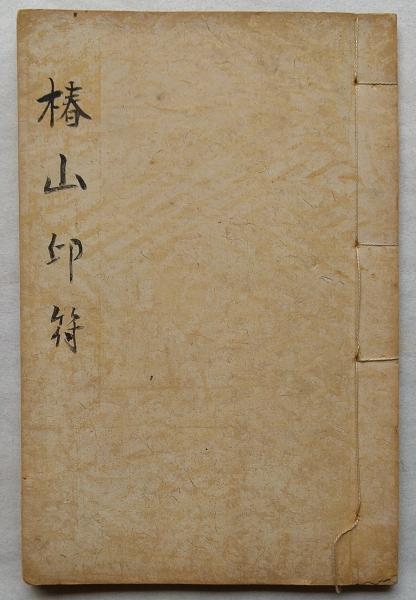 椿山印符